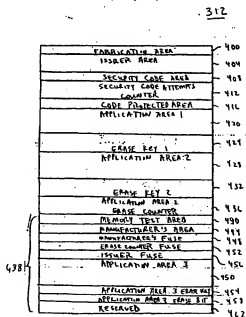 312
FABRICATION AREA 400
ISSUER AREA 404
SECURITY CODE AREA 408
SECURITY CODE ATTEMPTS
COUNTER 412
CODE PROTECTED AREA 416
APPLICATION AREA 1
420
ERASE KEY 1 424
APPLICATION AREA 2
428
ERASE KEY 2 432
APPLICATION AREA 2
ERASE COUNTER 436
MEMORY TEST AREA 440
MANUFACTURER'S AREA 444
MANUFACTURER'S FUSE 448
ERASE COUNTER FUSE 452
ISSUER FUSE
APPLICATION AREA 3
438
450
APPLICATION AREA 3 ERASE KEY
APPLICATION AREA 3 ERASE BIT
RESERVED 462